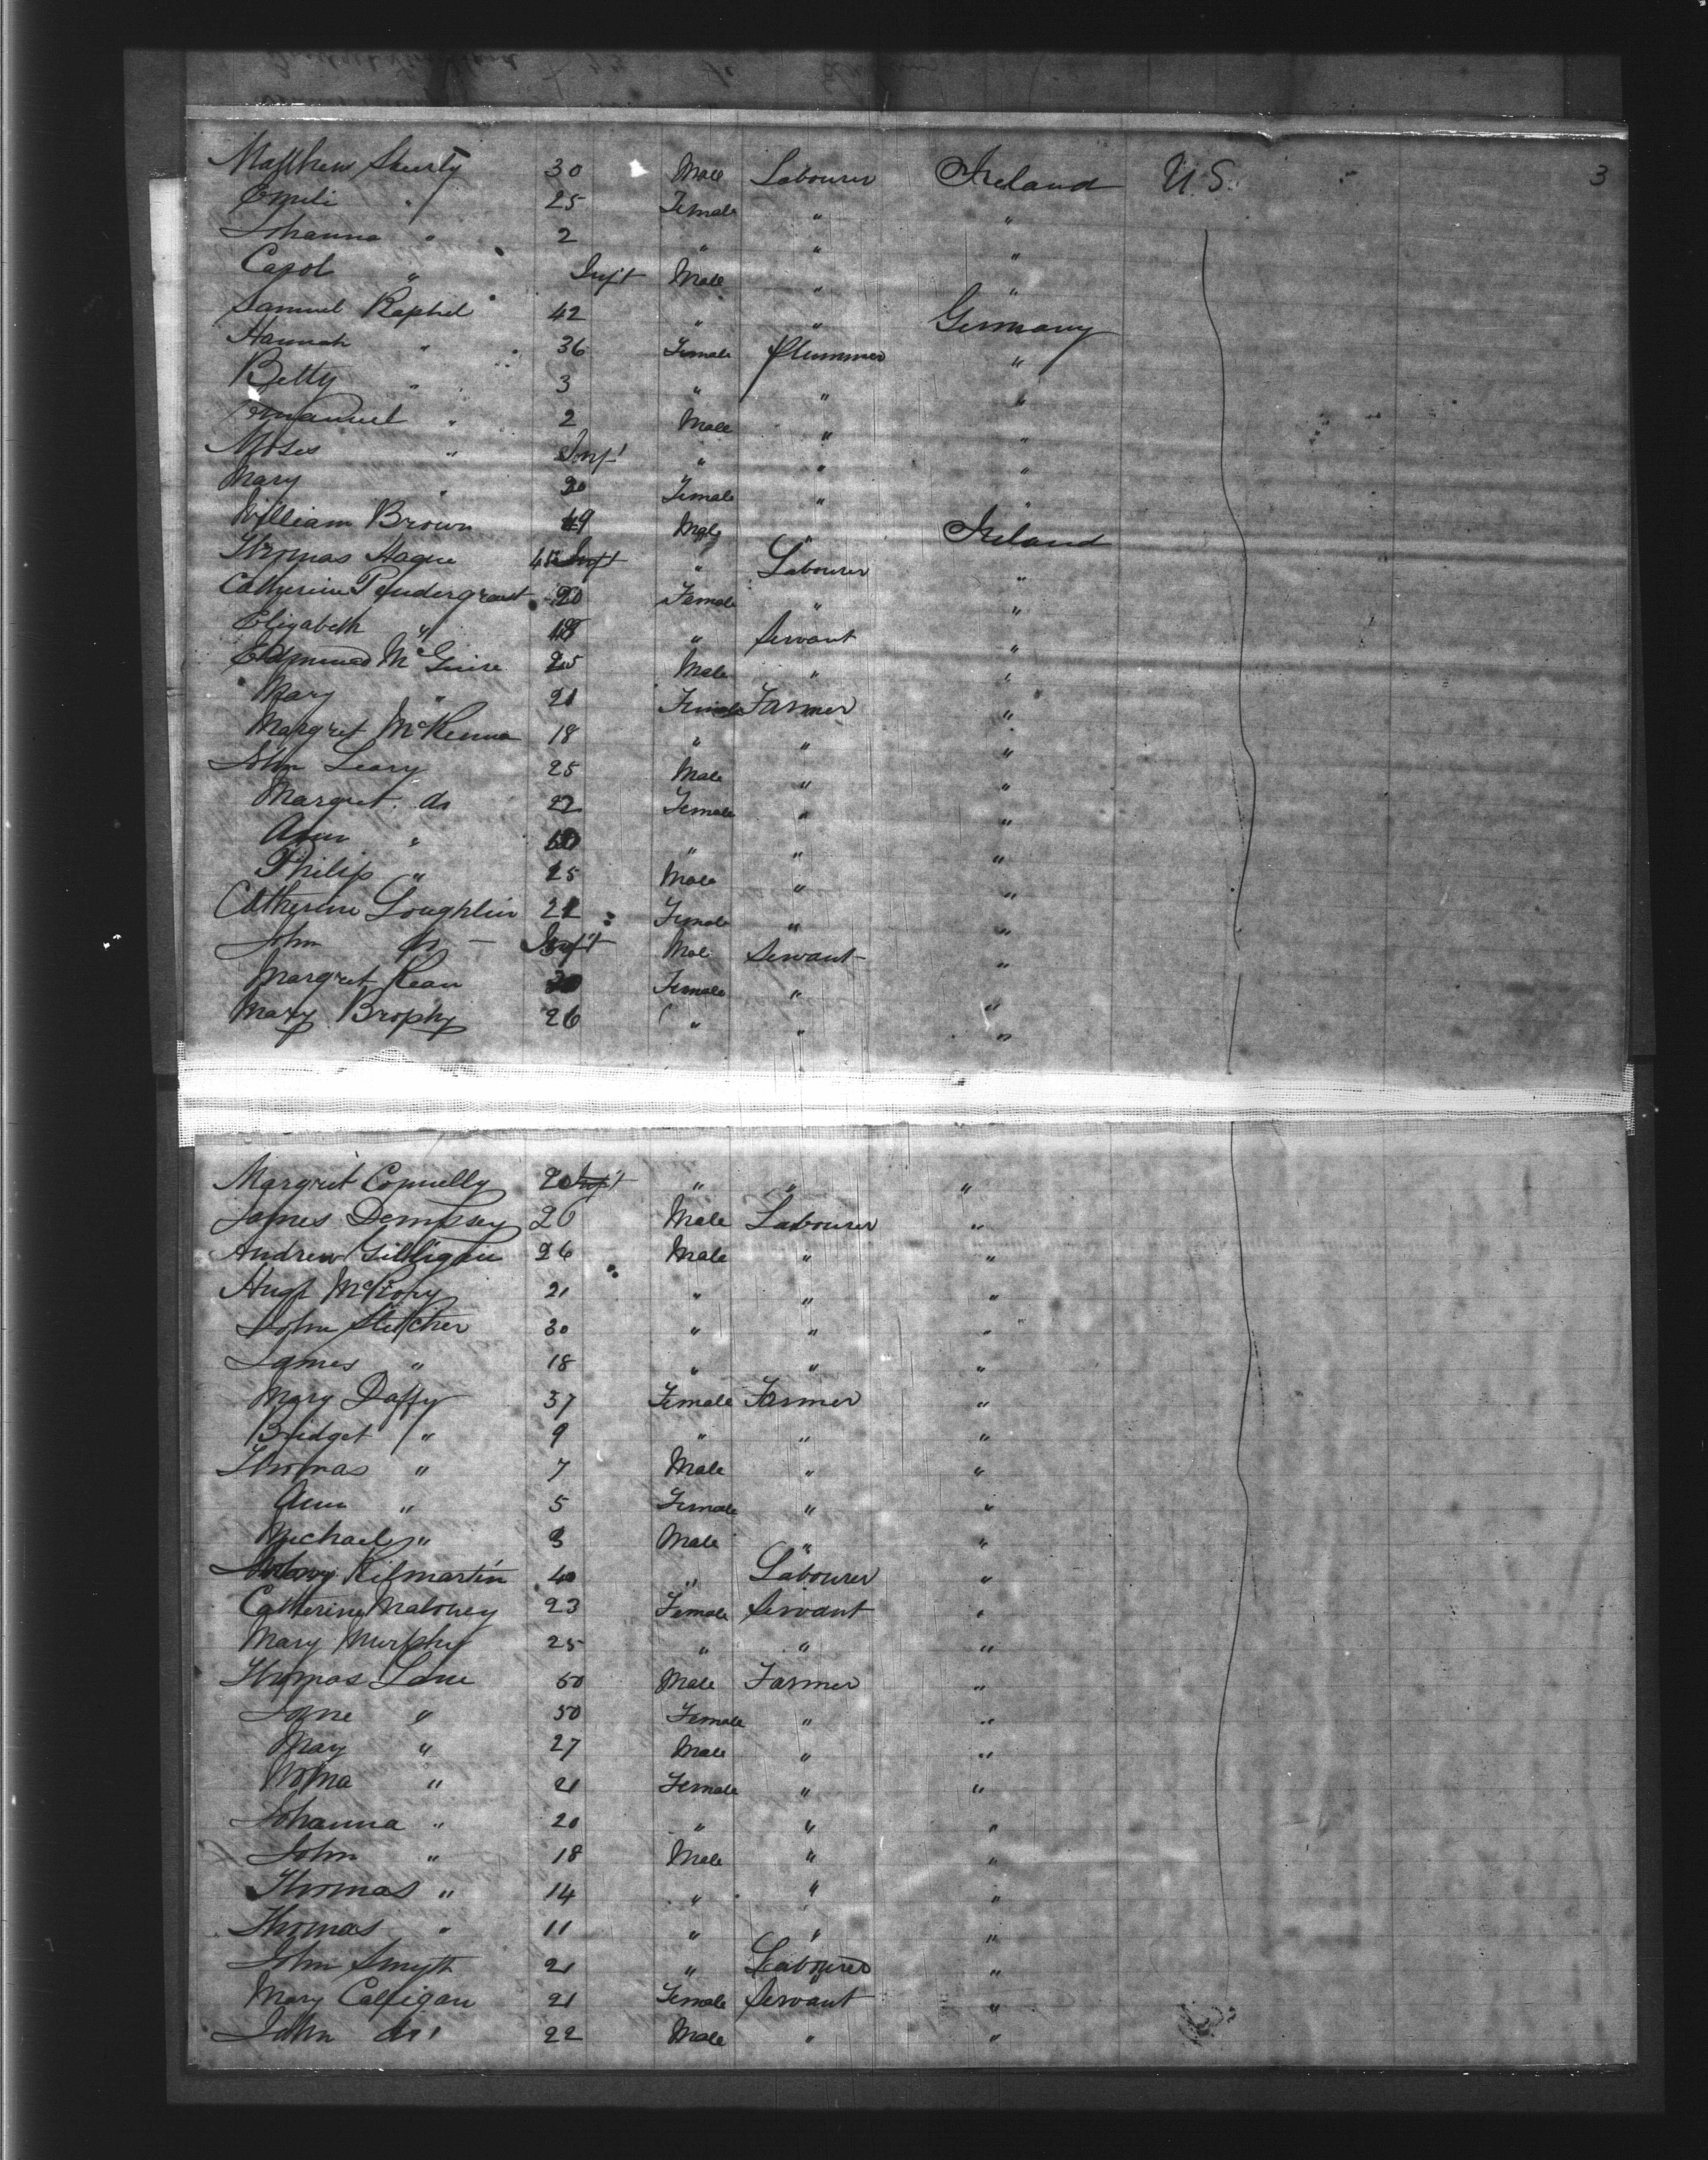 Matthew Shurty 30 Male Labourer Ireland U.S. 3
Emili " 25 Female " "
Johanna " 2 " " "
Carol " Inft Male " "
Samuel Raphel 42 " " Germany
Hannah " 36 Female Plummer "
Betty " 3 " " "
Emanuel " 2 Male " "
Moses " Inft " " "
Mary " 20 Female " "
William Brown 49 Male " Ireland
Thomas Hague " Labourer "
Catherine Pendergrast 20 Female " "
Elizabeth " 18 " Servant "
Edmund McGuire 25 Male " "
Mary " 21 Female Farmer "
Margret McKenna 18 " " "
John Leary 25 Male " "
Margret do 22 Female " "
Ann " " " "
Philip " 25 Male " "
Catherine Loughlin 21 Female " "
John do - Inft Male Servant "
Margret Kean 30 Female " "
Mary Brophy 26 " " "
Margret Connelly 20 Inft " " "
James Dempsey 20 Male Labourer "
Andrew Gilligan 26 Male " "
Hugh McRory 21 " " "
John Fletcher 30 " " "
James " 18 " " "
Mary Daffy 37 Female Farmer "
Bridget " 9 " " "
Thomas " 7 Male " "
Ann " 5 Female " "
Michael " 3 Male " "
Kilmartin 40 " Labourer "
Catherine Maloney 23 Female Servant "
Mary Murphy 25 " " "
Thomas Lane 50 Male Farmer "
Jane " 50 Female " "
May " 27 Male " "
Norma " 21 Female " "
Johanna " 20 " " "
John " 18 Male " "
Thomas " 14 " " "
Thomas " 11 " " "
John Smyth 21 " Labourer "
Mary Calligan 21 Female Servant "
John do 22 Male " "